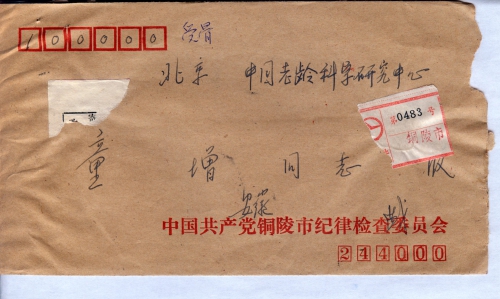 100000
受害
北京 中国老龄科学研究中心
第0483号
铜陵市
童增同志 收
安徽
中国共产党铜陵市纪律检查委员会
244000